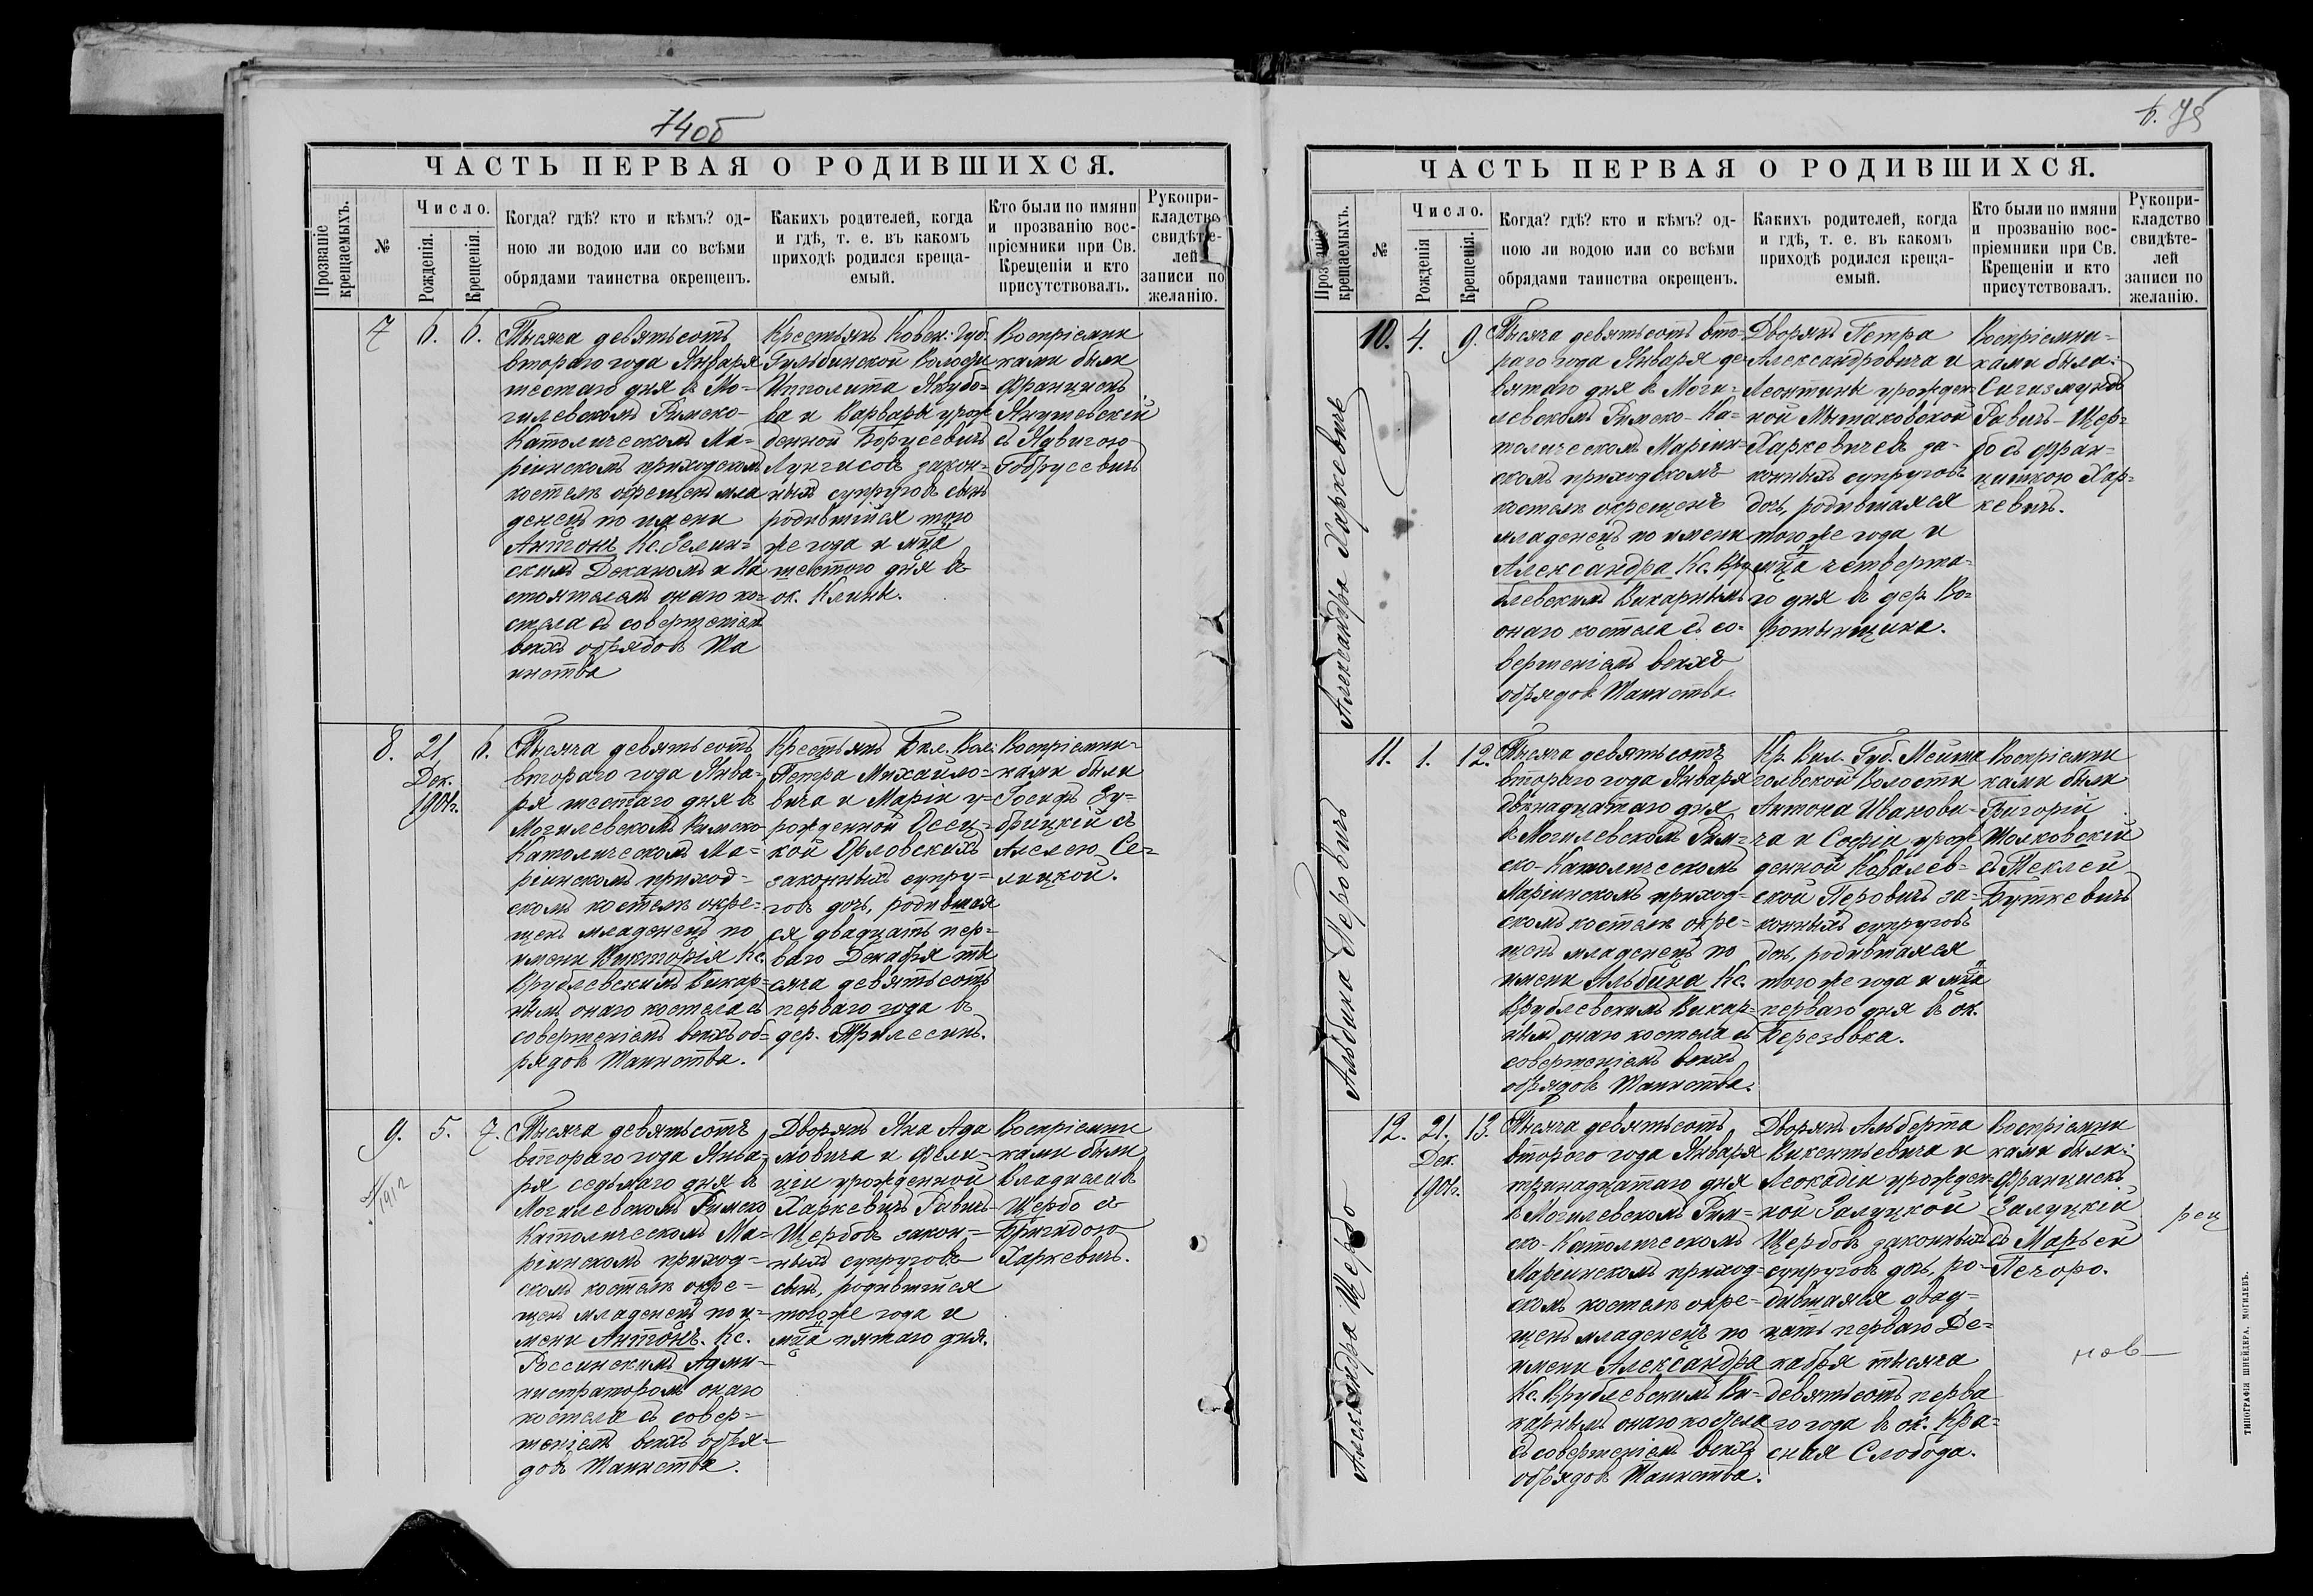 74об
ЧАСТЬ ПЕРВАЯ О РОДИВШИХСЯ.
Прозваніе крещаемыхъ.
№
Число.
Рожденія.
Крещенія.
Когда? гдѣ? кто и кѣмъ? од-
ною ли водою или со всѣми
обрядами таинства окрещенъ.
Какихъ родителей, когда
и гдѣ, т. е. въ какомъ
приходѣ родился креща-
емый.
Кто были по имяни
и прозванію вос-
пріемники при Св.
Крещеніи и кто
присутствовалъ.
Рукопри-
кладство
свидѣте-
лей
записи по
желанію.
7
6.
6.
Тысяча девятьсотъ
втораго года Января
шестаго дня въ Мо-
гилевскомъ Римско-
Католическомъ Ма-
ріинскомъ приходскомъ
костелѣ окрещенъ мла
денецъ по имени
Антонъ Кс. Зелин-
скимъ Деканомъ и На
стоятелемъ онаго ко-
стела съ совершеніемъ
всѣхъ обрядовъ Та
инства
Крестьянъ Ковен: Губ.
Гульбинской Волости
Ипполита Якубо-
ва и Варвары урож
денной Борусевичъ
Лунгисовъ закон-
ныхъ супруговъ сынъ
родившійся того
же года и мца
шестого дня въ
ок. Клины.
Воспріемни
ками были
Францискъ
Янушевскій
съ Ядвигою
Гобрусевичъ
8.
21
Дек.
1901г.
6.
Тысяча девятьсотъ
втораго года Янва-
ря шестаго дня въ
Могилевскомъ Римско
Католическомъ Ма-
ріинскомъ приход-
скомъ костелѣ окре-
щенъ младенецъ по
имени Викторія Кс.
Врублевскимъ Викар-
нымъ онаго костела съ
совершеніемъ всѣхъ об-
рядовъ Таинства.
Крестьянъ Бѣл. Вол:
Петра Михайло-
вича и Маріи у-
рожденной Осец-
кой Орловскихъ
законныхъ супру-
говъ дочь, родившая
ся двадцать пер-
ваго Декабря ты
сяча девятьсотъ
перваго года въ
дер. Трилесинъ.
Воспріемни-
ками были
Іосифъ Зу-
брицкій съ
Анелею Се-
лицкой.
9.
5.
7.
1912
Тысяча девятьсотъ
втораго года Янва-
ря седьмаго дня въ
Могилевскомъ Римско
Католическомъ Ма-
ріинскомъ приход-
скомъ костелѣ окре-
щенъ младенецъ по и-
мени Антонъ. Кс.
Россинскимъ Адми-
нистраторомъ онаго
костела съ совер-
шеніемъ всѣхъ обря-
довъ Таинства.
Дворянъ Яна Ада
мовича и Фели-
ціи урожденной
Харкевичъ Равичъ-
Щербовъ закон-
ныхъ супруговъ
сынъ, родившійся
тогоже года и
мца пятаго дня.
Воспріемни
ками были
Владиславъ
Щербо съ
Бригидою
Харкевичъ.
75
ЧАСТЬ ПЕРВАЯ О РОДИВШИХСЯ.
Прозваніе крещаемыхъ.
№
Число.
Рожденія
Крещенія.
Когда? гдѣ? кто и кѣмъ? од-
ною ли водою или со всѣми
обрядами таинства окрещенъ.
Какихъ родителей, когда
и гдѣ, т. е. въ какомъ
приходѣ родился креща-
емый.
Кто были по имяни
и прозванію вос-
пріемники при Св.
Крещеніи и кто
присутствовалъ.
Рукопри-
кладство
свидѣте-
лей
записи по
желанію.
Александра Харкевичъ
10.
4.
9.
Тысяча девятьсотъ вто-
раго года Января де-
вятаго дня въ Моги-
левскомъ Римско-Ка-
толическомъ Маріин-
скомъ приходскомъ
костелѣ окрещенъ
младенецъ по имени
Александра Кс. Вру
блевскимъ Викарнымъ
онаго костела съ со-
вершеніемъ всѣхъ
обрядовъ Таинства.
Дворянъ Петра
Александровича и
Леонтины урожден-
ной Мытаковской
Харкевичевъ за-
конныхъ супруговъ
дочь, родившаяся
тогоже года и
мца четверта-
го дня въ дер. Во-
ротынщина.
Воспріемни-
ками были:
Сигизмундъ
Равичъ-Щер-
бо съ Фран-
цишкою Хар-
кевичъ.
Альбина Перовичъ
11.
1.
12.
Тысяча девятьсотъ
втораго года Января
двѣнадцатаго дня
въ Могилевскомъ Рим-
ско-Католическомъ
Маріинскомъ приход-
скомъ костелѣ окре-
щенъ младенецъ по
имени Альбина Кс.
Врублевскимъ Викар-
нымъ онаго костела съ
совершеніемъ всѣхъ
обрядовъ Таинства.
Кр. Вил. Губ. Мейша
гольской Волости
Антона Иванови-
ча и Софіи урож
денной Ковалев-
ской Перовичъ за-
конныхъ супруговъ
дочь, родившаяся
тогоже года и мца
перваго дня въ ок.
Березовка.
Воспріемни
ками были
Григорій
Толковскій
съ Теклей
Буткевичъ
Александра Щербо
12.
21.
Дек.
1901г.
13.
Тысяча девятьсотъ
второго года Января
тринадцатаго дня
въ Могилевскомъ Рим-
ско-Католическомъ
Маріинскомъ приход-
скомъ костелѣ окре-
щенъ младенецъ по
имени Александра
Кс. Врублевскимъ Ви-
карнымъ онаго костела
съ совершеніемъ всѣхъ
обрядовъ Таинства.
Дворянъ Альберта
Викентьевича и
Леокадіи урожден-
ной Залуцкой
Щербовъ законныхъ
супруговъ дочь, ро-
дившаяся двад-
цать перваго Де-
кабря тысяча
девятьсотъ перва
го года въ ок. Кра-
сная Слобода.
Воспріемни
ками были:
Францискъ
Залуцкій
съ Марьей
Печоро.
рец
нов
ТИПОГРАФІЯ ШНЕЙДЕРА. МОГИЛЕВЪ.